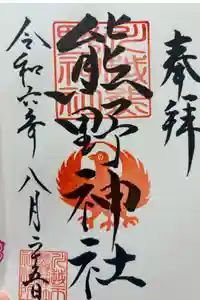 奉拝
熊野神社
令和六年八月二十五日